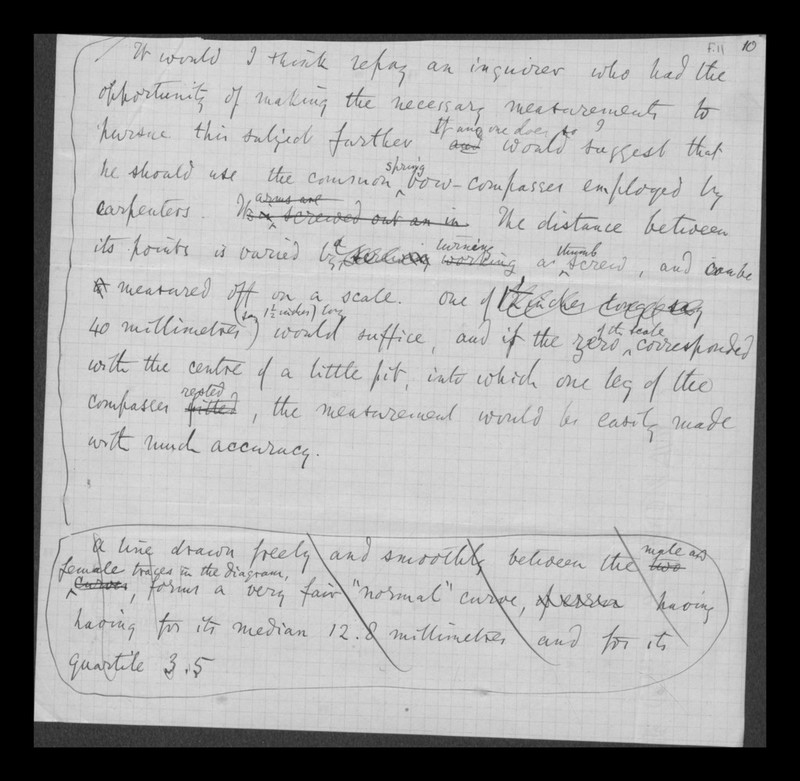 F.11 10
It would I think repay an inquirer who had the
opportunity of making the necessary measurements to
pursue this subject further If any one does so I
and would suggest that
he should use the common spring bow-compasses employed by
carpenters. arms are
screwed out an in The distance between
its points is varied by a turning
working a thumb screw, and can be
measured off on a scale. One of
(say 1½ inches) long
40 millimetres) would suffice, and if the zero of the scale corresponded
with the centre of a little pit, into which one leg of the
compasses rested
fitted, the measurement would be easily made
with much accuracy.
A line drawn freely and smoothly between the male and
two
female traces in the diagram,
curves, forms a very fair "normal" curve, having
having for its median 12.8 millimetres and for its
quartile 3.5